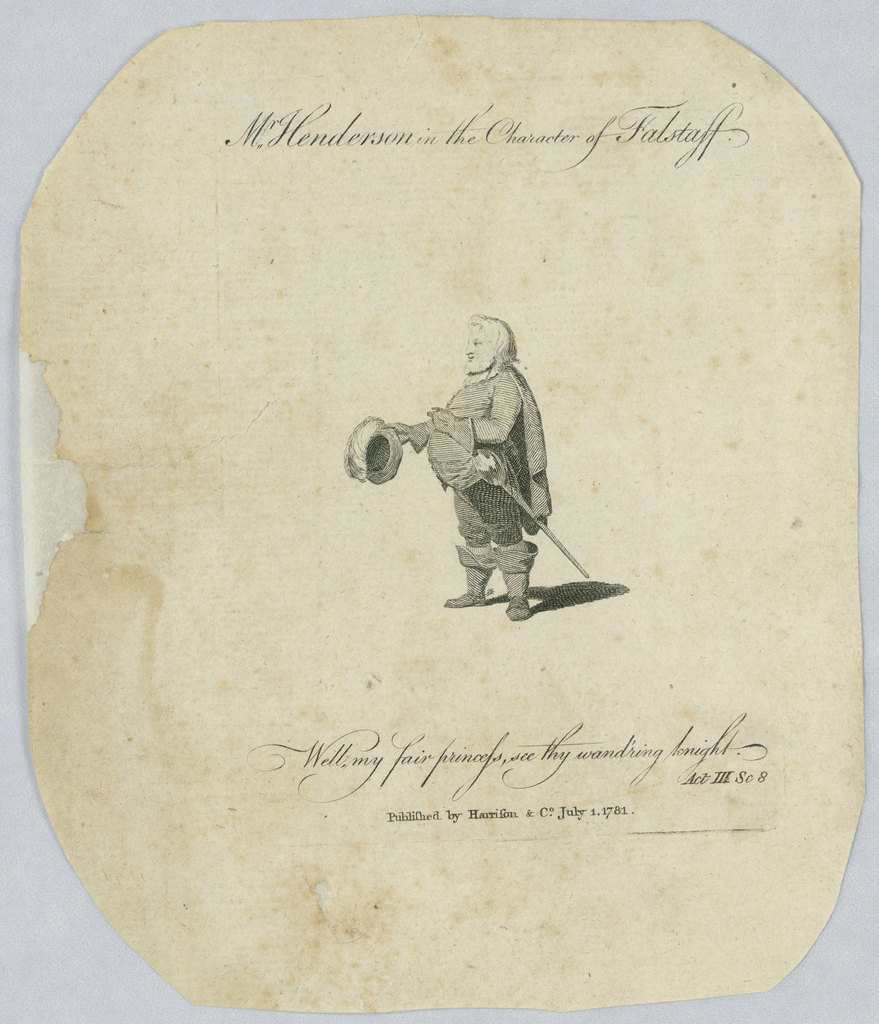 Mr. Henderson in the Character of Falstaff.
Well, my fair princeſs, see thy wand'ring knight.
Act III Sc 8
Publiſhed by Harriſon & Cº. July 1. 1781.